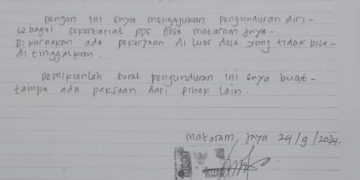 Dengan ini saya mengajukan pengunduran diri -
sebagai sekertariat pps Desa mataram Jaya -
Dikarnakan ada pekerjaan di luar desa yang tidak bisa -
di tinggalkan.
Demikianlah surat pengunduran ini saya buat -
tanpa ada paksaan dari pihak lain.
mataram, Jaya 24/9/2024.
10000